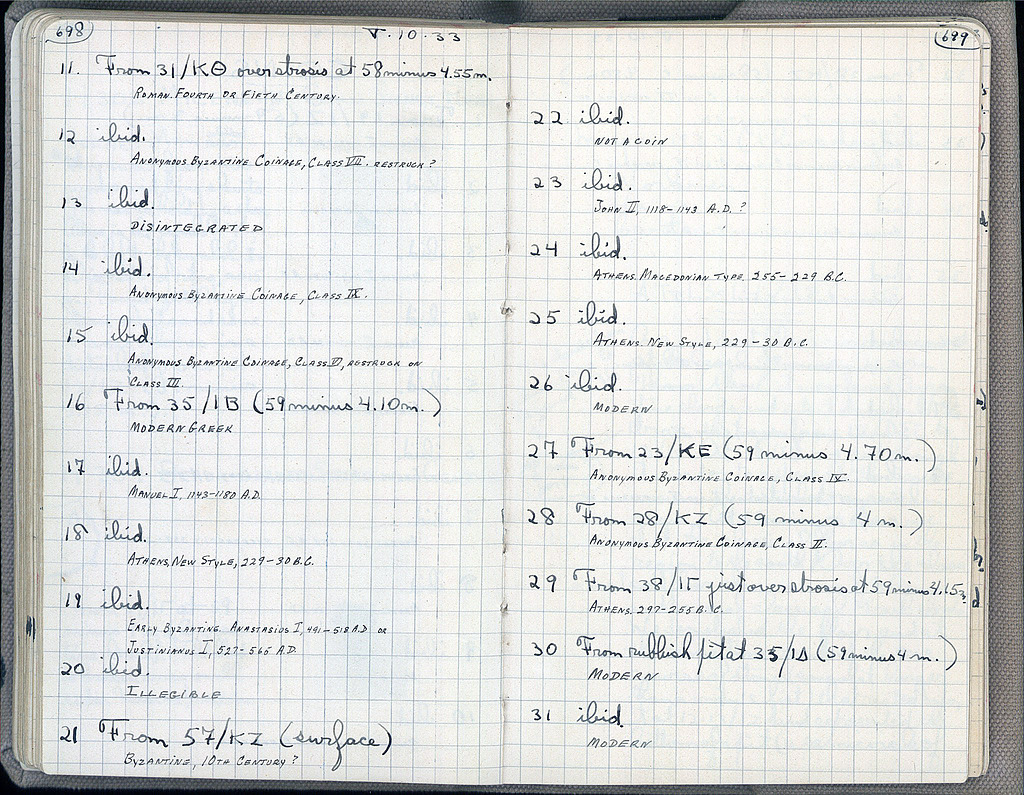 698
V.10.33
11. From 31/ΚΘ over strosis at 58 minus 4.55 m.
ROMAN. FOURTH OR FIFTH CENTURY.
12 ibid.
ANONYMOUS BYZANTINE COINAGE, CLASS VII. RESTRUCK?
13 ibid.
DISINTEGRATED
14 ibid.
ANONYMOUS BYZANTINE COINAGE, CLASS IX.
15 ibid.
ANONYMOUS BYZANTINE COINAGE, CLASS VI, RESTRUCK ON
CLASS III.
16 From 35/ΙΒ (59 minus 4.10 m.)
MODERN GREEK
17 ibid.
MANUEL I, 1143-1180 A.D.
18 ibid.
ATHENS, NEW STYLE, 229-30 B.C.
19 ibid.
EARLY BYZANTINE. ANASTASIUS I, 491-518 A.D. OR
JUSTINIANUS I, 527-565 A.D.
20 ibid.
ILLEGIBLE
21 From 57/ΚΖ (surface)
BYZANTINE, 10TH CENTURY?
699
22 ibid.
NOT A COIN
23 ibid.
JOHN II, 1118-1143 A.D.?
24 ibid.
ATHENS. MACEDONIAN TYPE. 255-229 B.C.
25 ibid.
ATHENS. NEW STYLE, 229-30 B.C.
26 ibid.
MODERN
27 From 23/ΚΕ (59 minus 4.70 m.)
ANONYMOUS BYZANTINE COINAGE, CLASS IV.
28 From 28/ΚΖ (59 minus 4 m.)
ANONYMOUS BYZANTINE COINAGE, CLASS II.
29 From 38/ΙΓ just over strosis at 59 minus 4.15
ATHENS. 297-255 B.C.
30 From rubbish pit at 35/ΙΔ (59 minus 4 m.)
MODERN
31 ibid.
MODERN